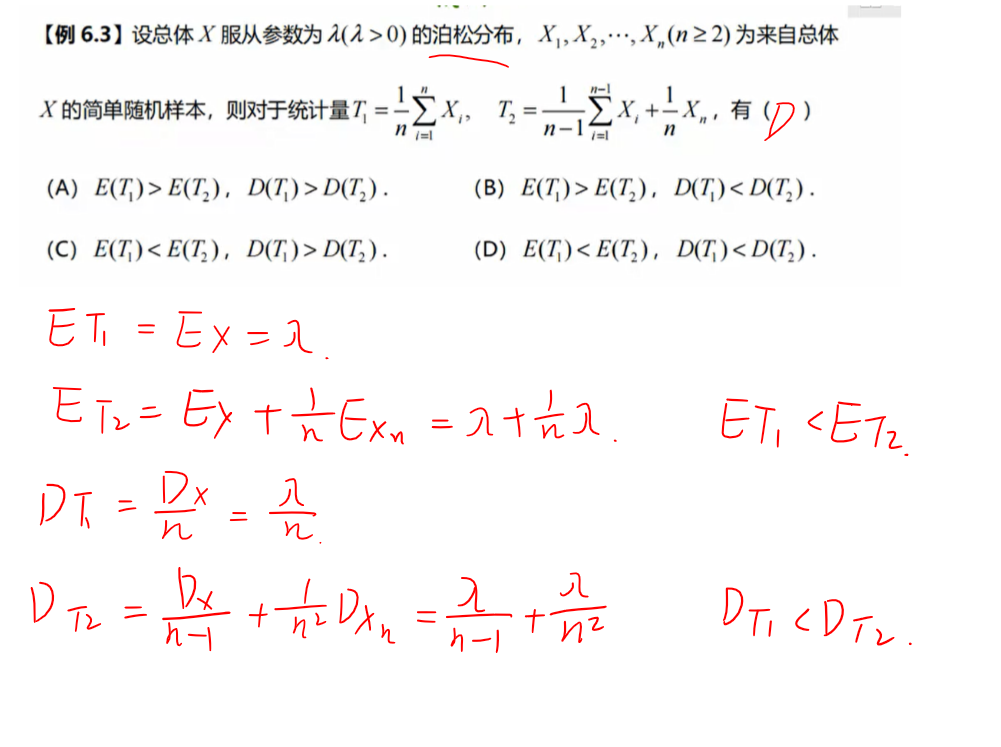 【例 6.3】设总体 X 服从参数为 λ(λ>0) 的泊松分布，X₁, X₂, ⋯, Xₙ (n≥2) 为来自总体
X 的简单随机样本，则对于统计量 T₁ = \frac{1}{n}\sum_{i=1}^{n} X_i, T₂ = \frac{1}{n-1}\sum_{i=1}^{n-1} X_i + \frac{1}{n} X_n，有（D）
(A) E(T₁)>E(T₂)，D(T₁)>D(T₂). (B) E(T₁)>E(T₂)，D(T₁)<D(T₂).
(C) E(T₁)<E(T₂)，D(T₁)>D(T₂). (D) E(T₁)<E(T₂)，D(T₁)<D(T₂).
ET₁ = EX = λ.
ET₂ = EX + \frac{1}{n} EXₙ = λ + \frac{1}{n} λ. ET₁ < ET₂.
DT₁ = \frac{DX}{n} = \frac{λ}{n}.
DT₂ = \frac{DX}{n-1} + \frac{1}{n^2} DXₙ = \frac{λ}{n-1} + \frac{λ}{n^2} DT₁ < DT₂.